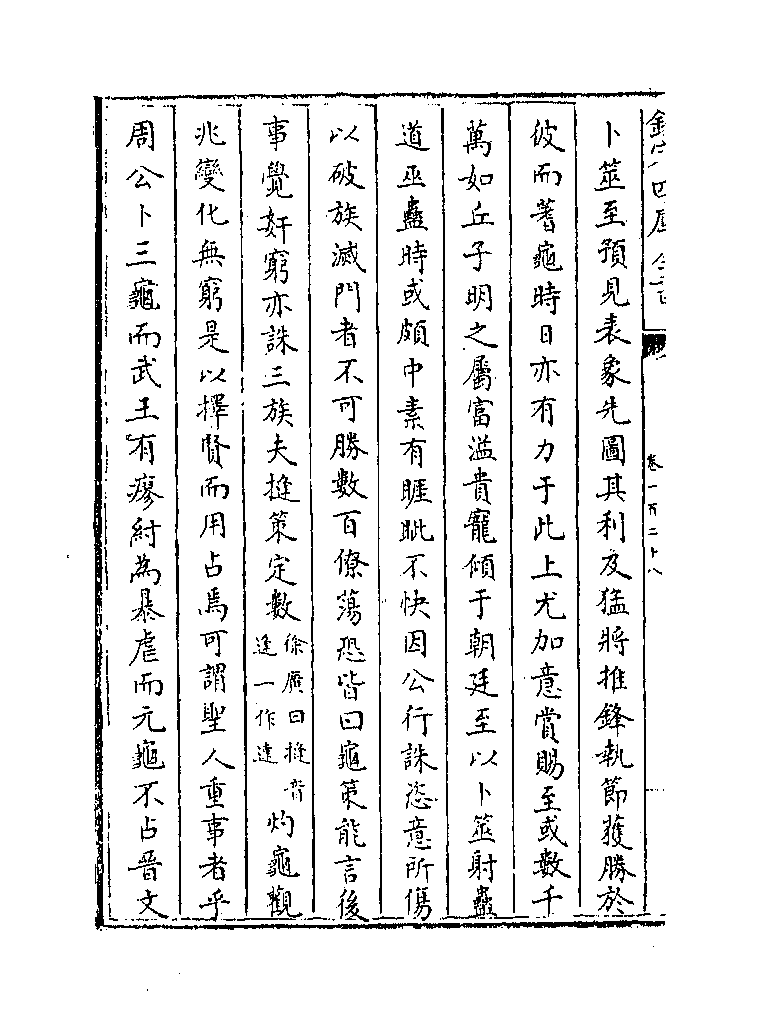 欽定四庫全書
卷一百二十八
卜筮至預見表象先圖其利及猛將推鋒執節獲勝於
彼而蓍龜時日亦有力于此上尤加意賞賜至或數千
萬如丘子明之屬富溢貴寵傾于朝廷至以卜筮射蠱
道巫蠱時或頗中素有睚眦不快因公行誅恣意所傷
以破族滅門者不可勝數百僚蕩恐皆曰龜策能言後
事覺奸窮亦誅三族夫摓策定數徐廣曰摓音逢一作達灼龜觀
兆變化無窮是以擇賢而用占焉可謂聖人重事者乎
周公卜三龜而武王有瘳紂為暴虐而元龜不占晉文